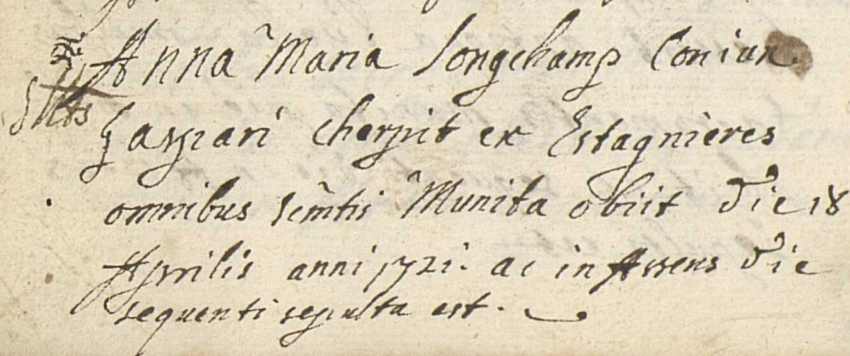 Anna Maria Longchamp Coniun.
Gaspari cherpit ex Estagnieres
omnibus sēmtis Munita obiit die 18
Aprilis anni 1721. ac in Assens die
sequenti sepulta est.